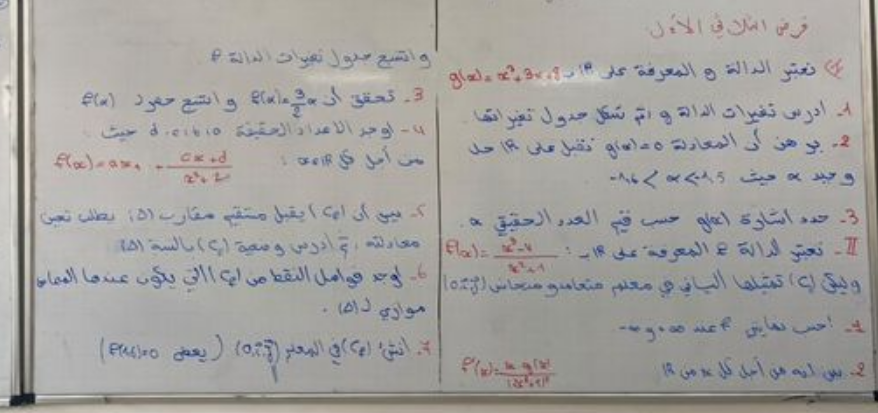 فرض الثلاثي الأول
I) نعتبر الدالة g المعرفة على IR بـ g(x) = x³+3x+8
1- أدرس تغيرات الدالة g ثم شكل جدول تغيراتها
2- برهن أن المعادلة g(x)=0 تقبل على IR حل
وحيد α حيث -1,6 < α < -1,5
3- حدد اشارة g(x) حسب قيم العدد الحقيقي x.
II- نعتبر الدالة f المعرفة على IR بـ : f(x) = x³-4 / x²+1
وليكن (Cf) تمثيلها البياني في معلم متعامد و متجانس (0,i,j)
1- احسب نهايتي f عند +∞ و -∞
2- بين انه من أجل كل x من IR f'(x) = x g(x) / (x²+1)²
و استنتج جدول تغيرات الدالة f
3- تحقق أن f(α) = 3/2 α و استنتج حصر لـ f(α)
4- اوجد الأعداد الحقيقية a ، b ، c ، d حيث
من أجل كل x∈IR : f(x) = ax+ cx+d / x²+
5- بين أن (Cf) يقبل مستقيم مقارب (Δ) يطلب تعيين
معادلته ، ثم أدرس وضعية (Cf) بالنسبة (Δ)
6- اوجد فواصل النقط من (Cf) التي يكون عندها المماس
موازي لـ (Δ) .
7- أنشئ (Cf) في المعلم (0,i,j) ( يعطى f(1,6)=0 )